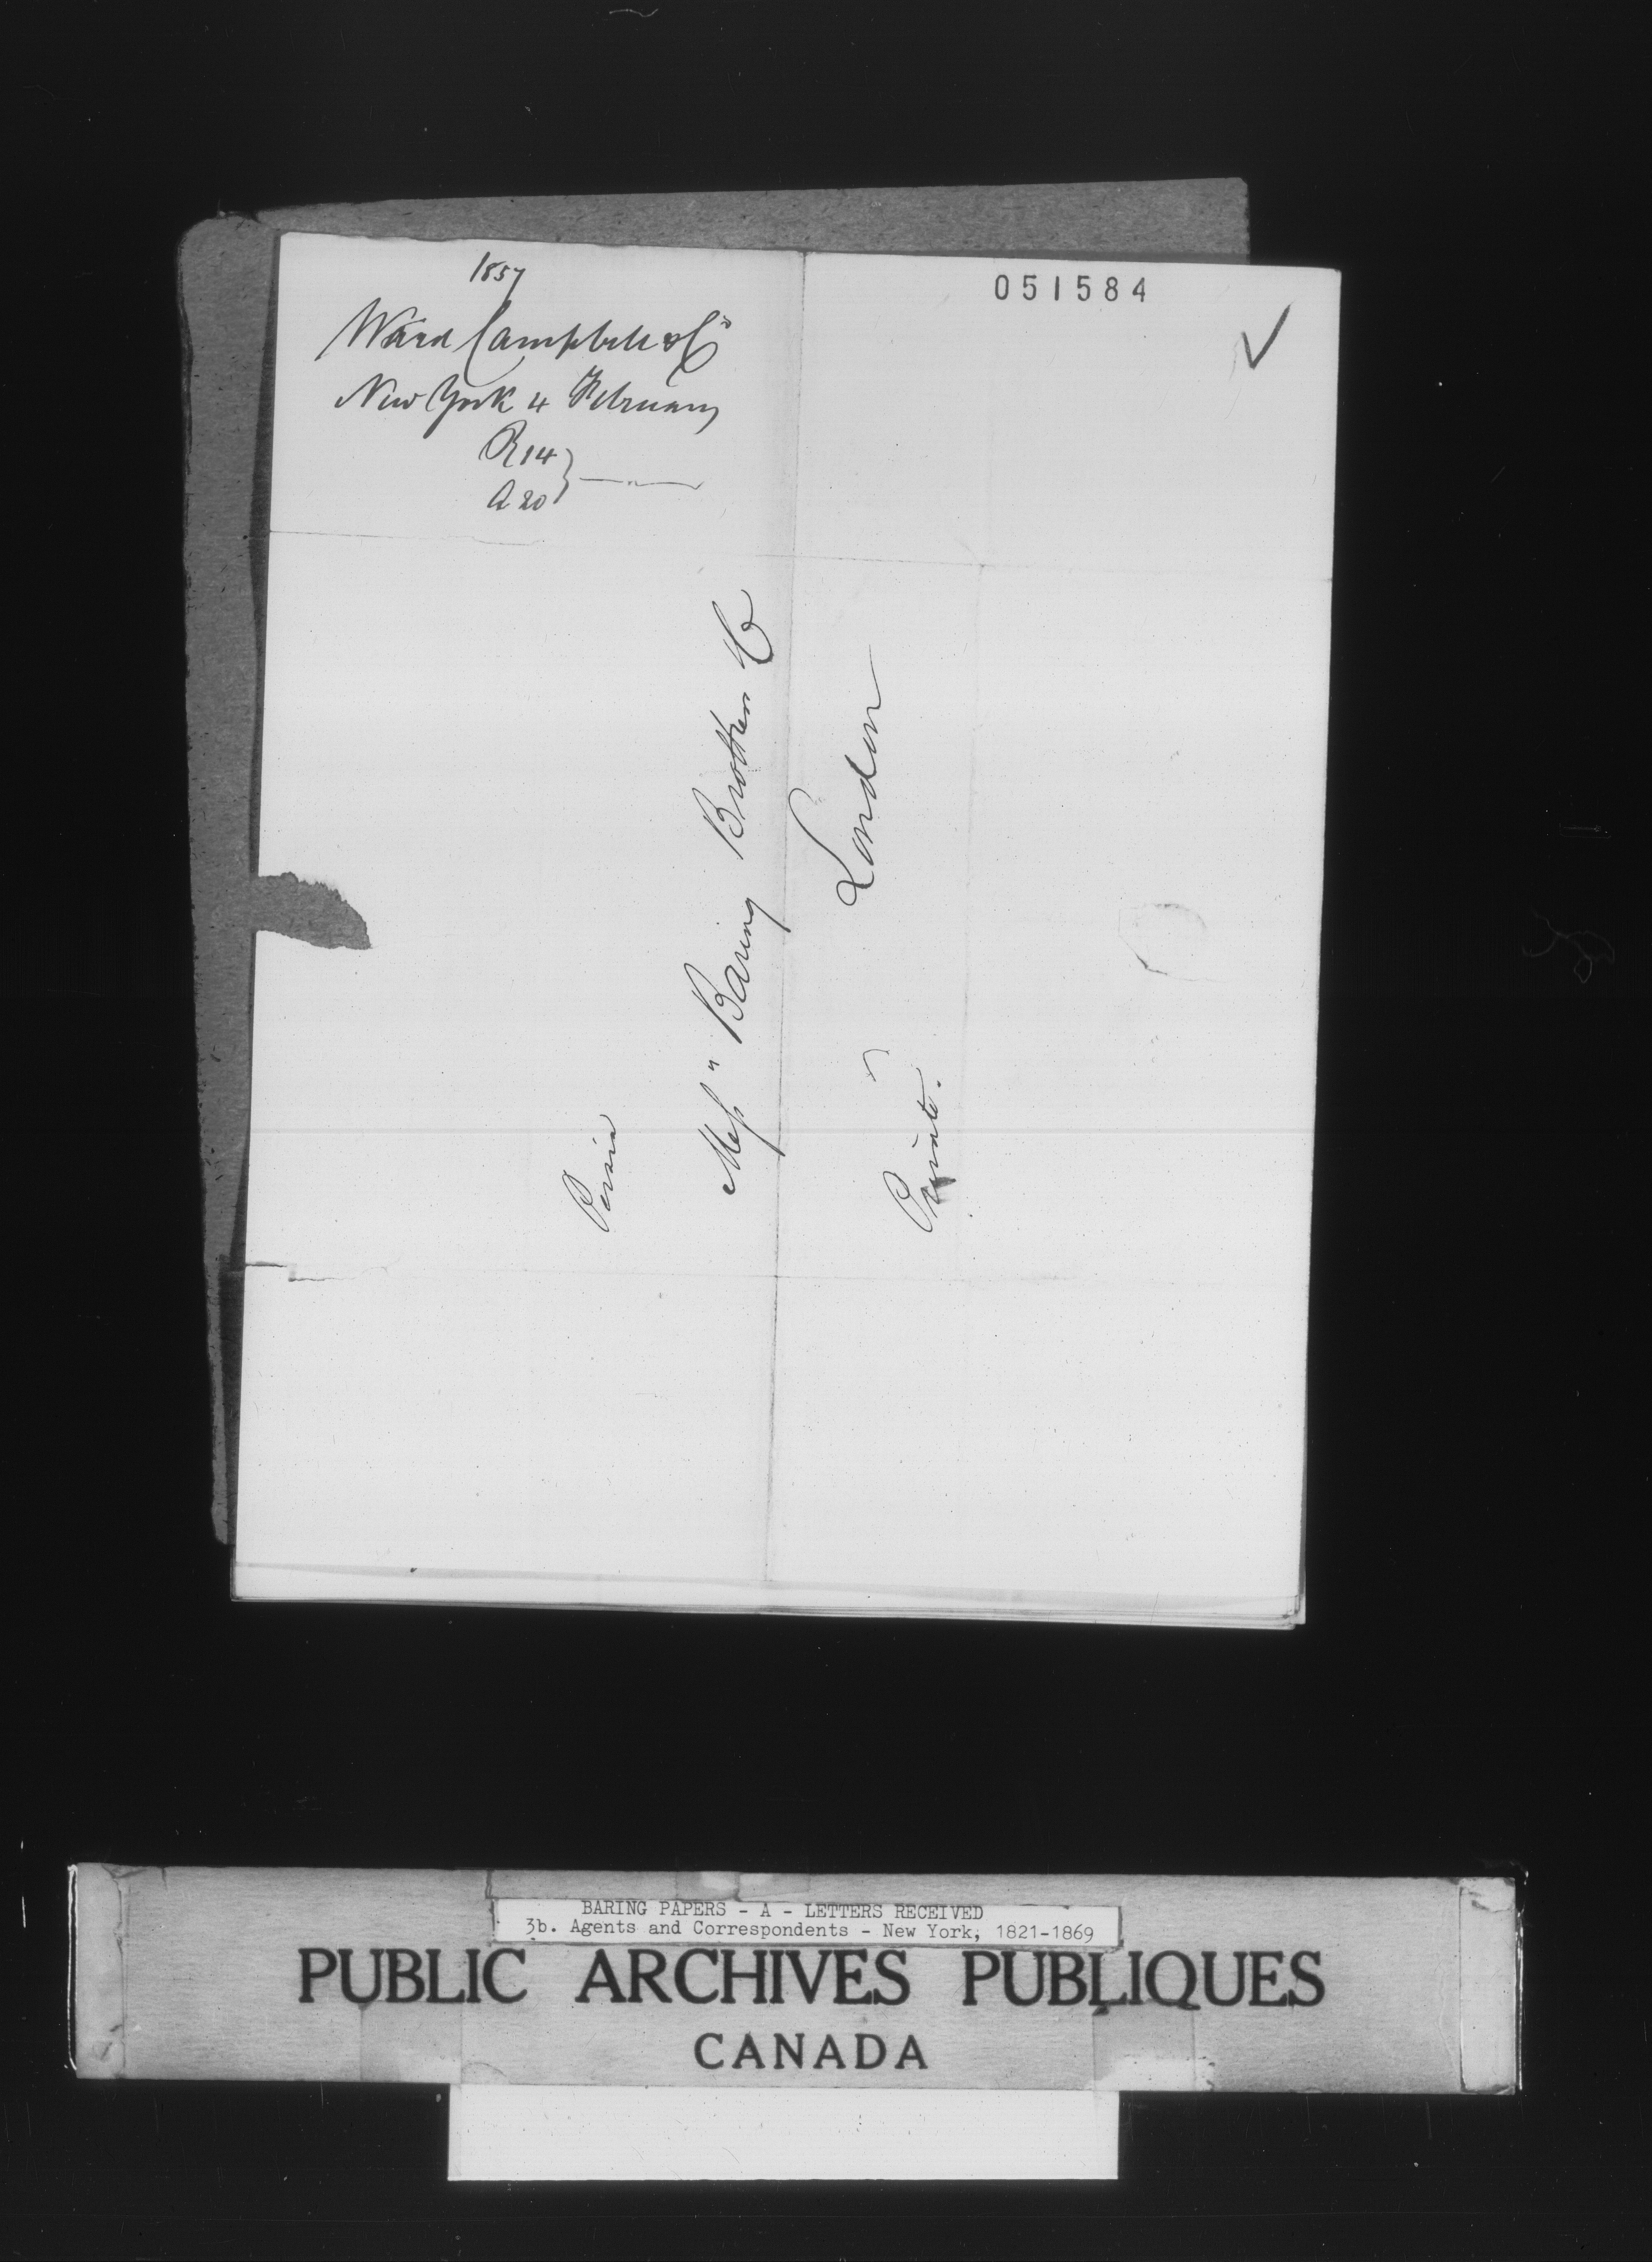 1857
051584
Ward Campbell & Co
New York 4 February
R 14
A 20
Persia
Messrs Baring Brothers Co
London
Private.
BARING PAPERS - A - LETTERS RECEIVED
3b. Agents and Correspondents - New York, 1821-1869
PUBLIC ARCHIVES PUBLIQUES
CANADA